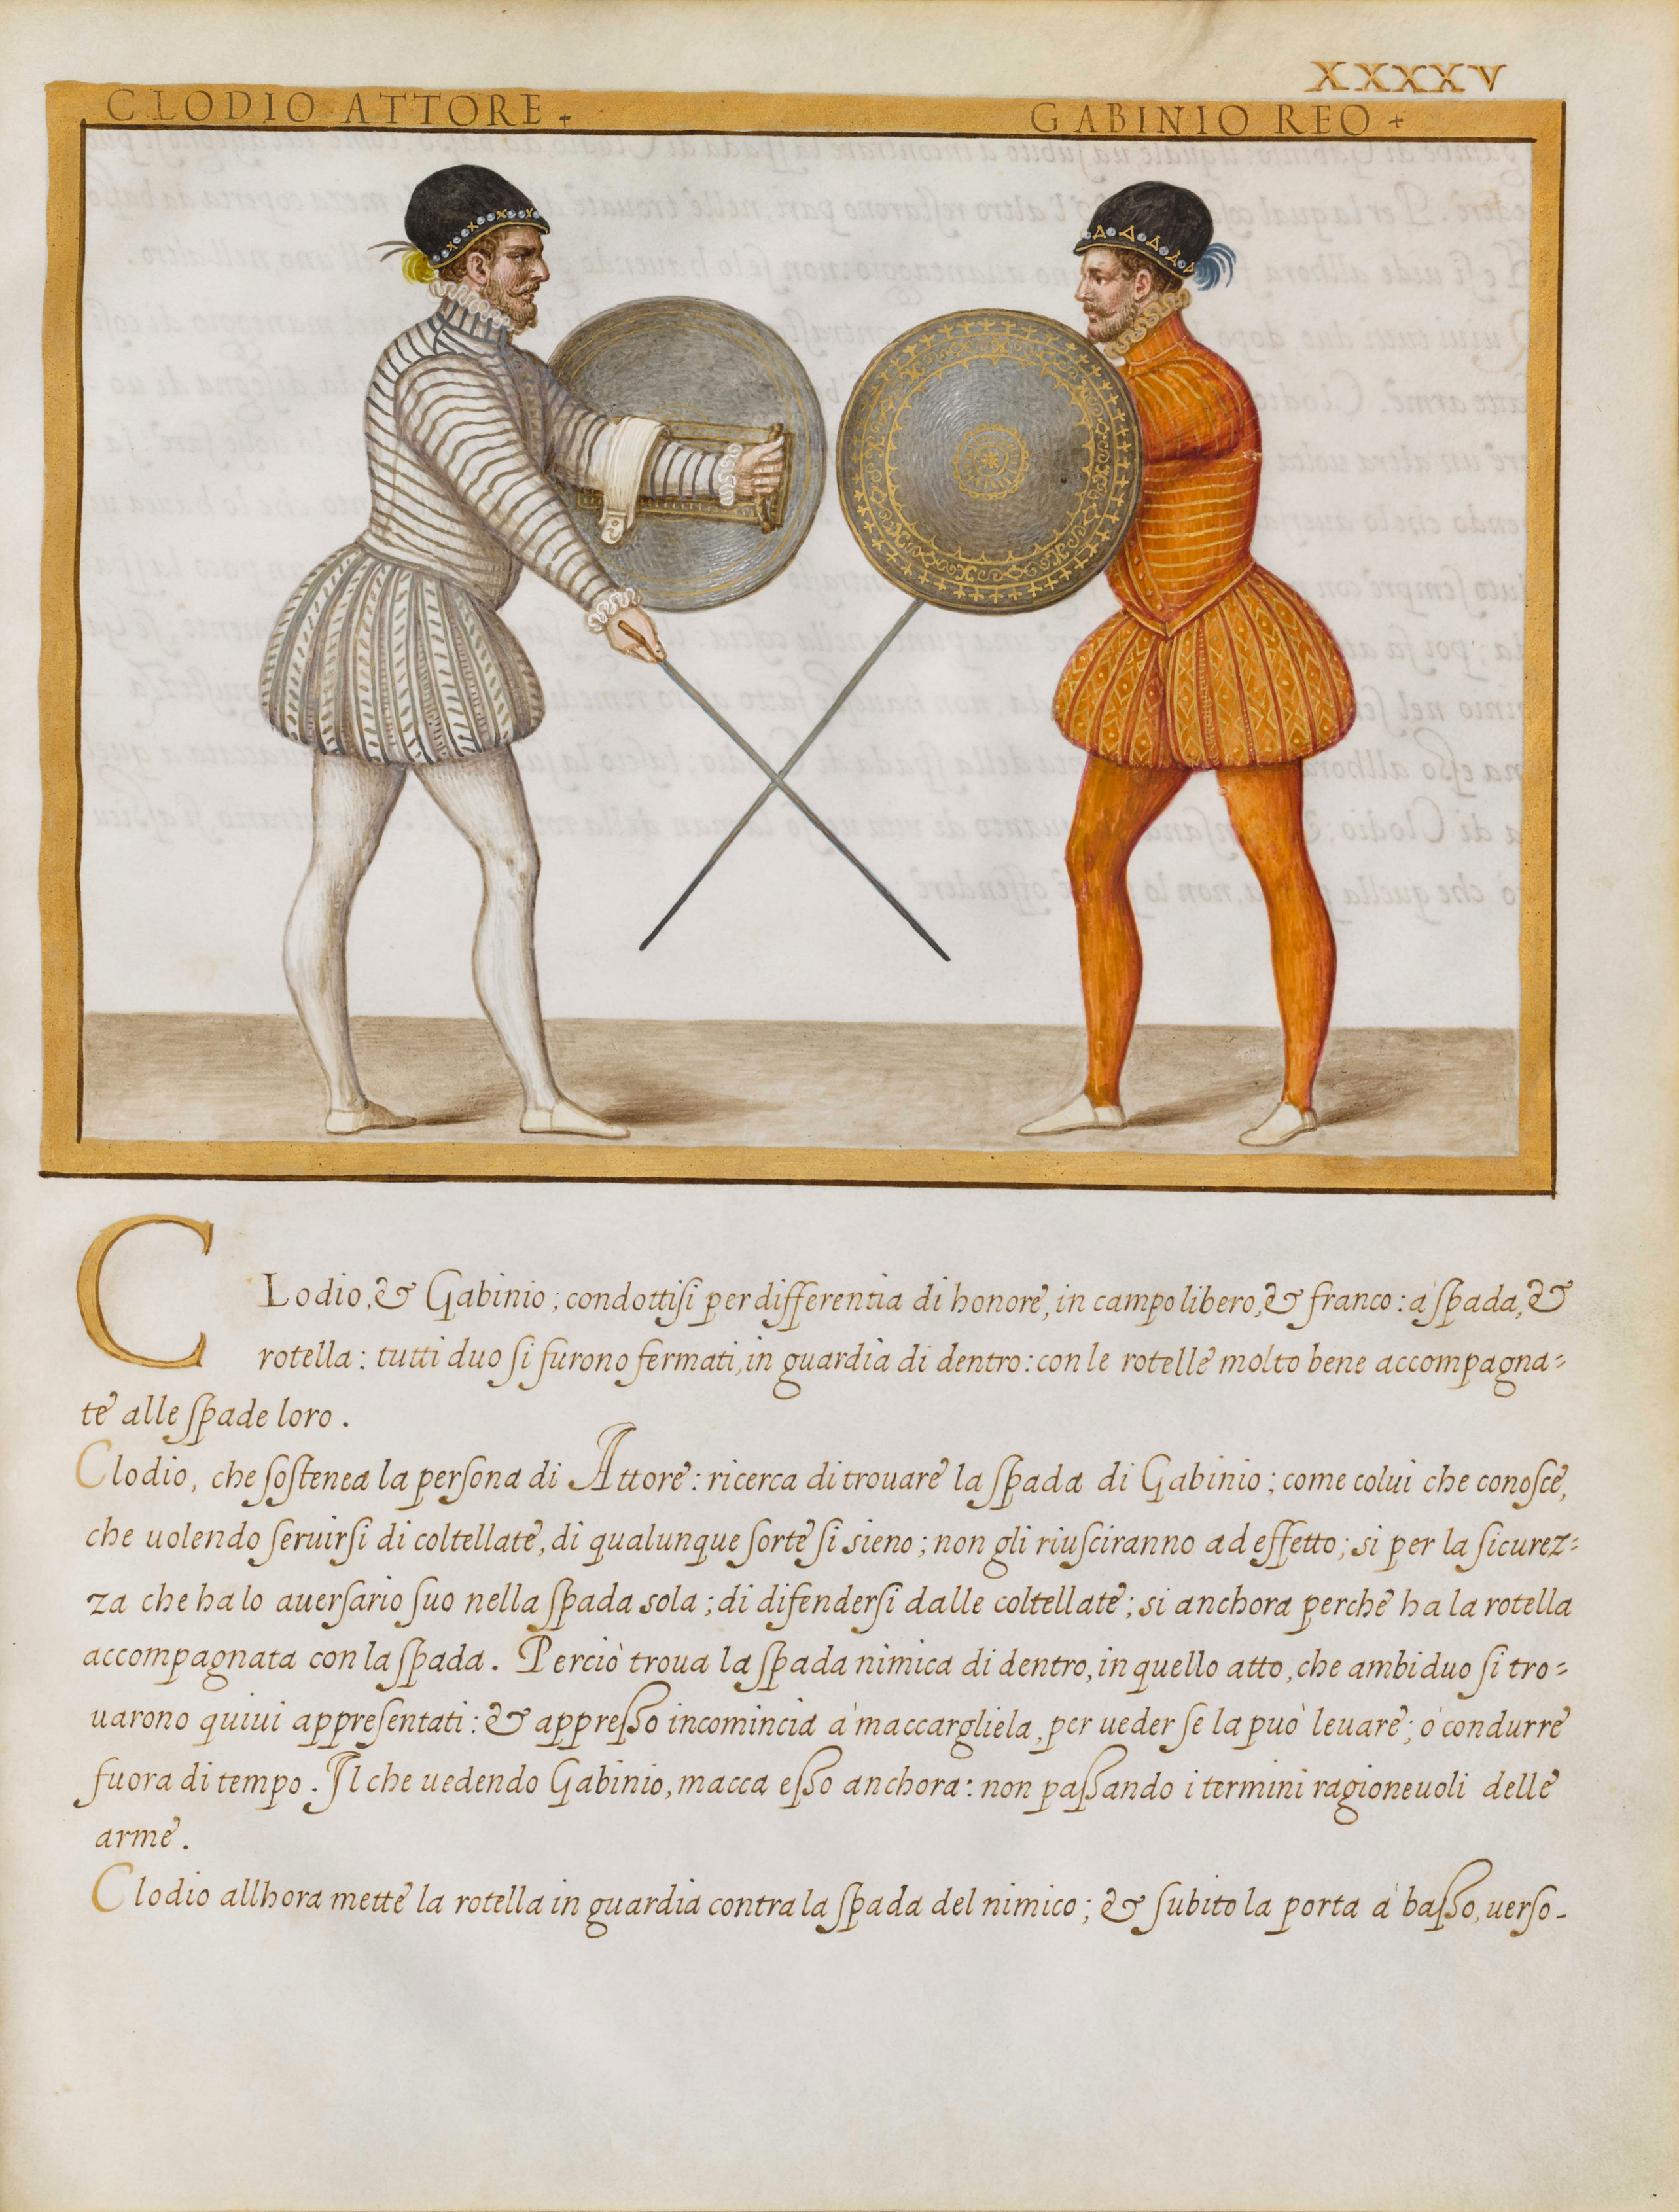 XXXXV
CLODIO ATTORE + GABINIO REO +
CLodio, & Gabinio; condottisi per differentia di honore, in campo libero, & franco: à spada, &
rotella: tutti duo si furono fermati, in guardia di dentro: con le rotelle molto bene accompagna=
te alle spade loro.
Clodio, che sostenea la persona di Attore: ricerca di trouare la spada di Gabinio; come colui che conosce,
che uolendo seruirsi di coltellate, di qualunque sorte si sieno; non gli riusciranno ad effetto; si per la sicurez=
za che ha lo auersario suo nella spada sola; di difendersi dalle coltellate; si anchora perche ha la rotella
accompagnata con la spada. Perciò troua la spada nimica di dentro, in quello atto, che ambiduo si tro=
uarono quiui appresentati: & appresso incomincia à maccargliela, per ueder se la può leuare; ò condurre
fuora di tempo. Il che uedendo Gabinio, macca esso anchora: non passando i termini ragioneuoli delle
arme.
Clodio allhora mette la rotella in guardia contra la spada del nimico; & subito la porta à basso, uerso-